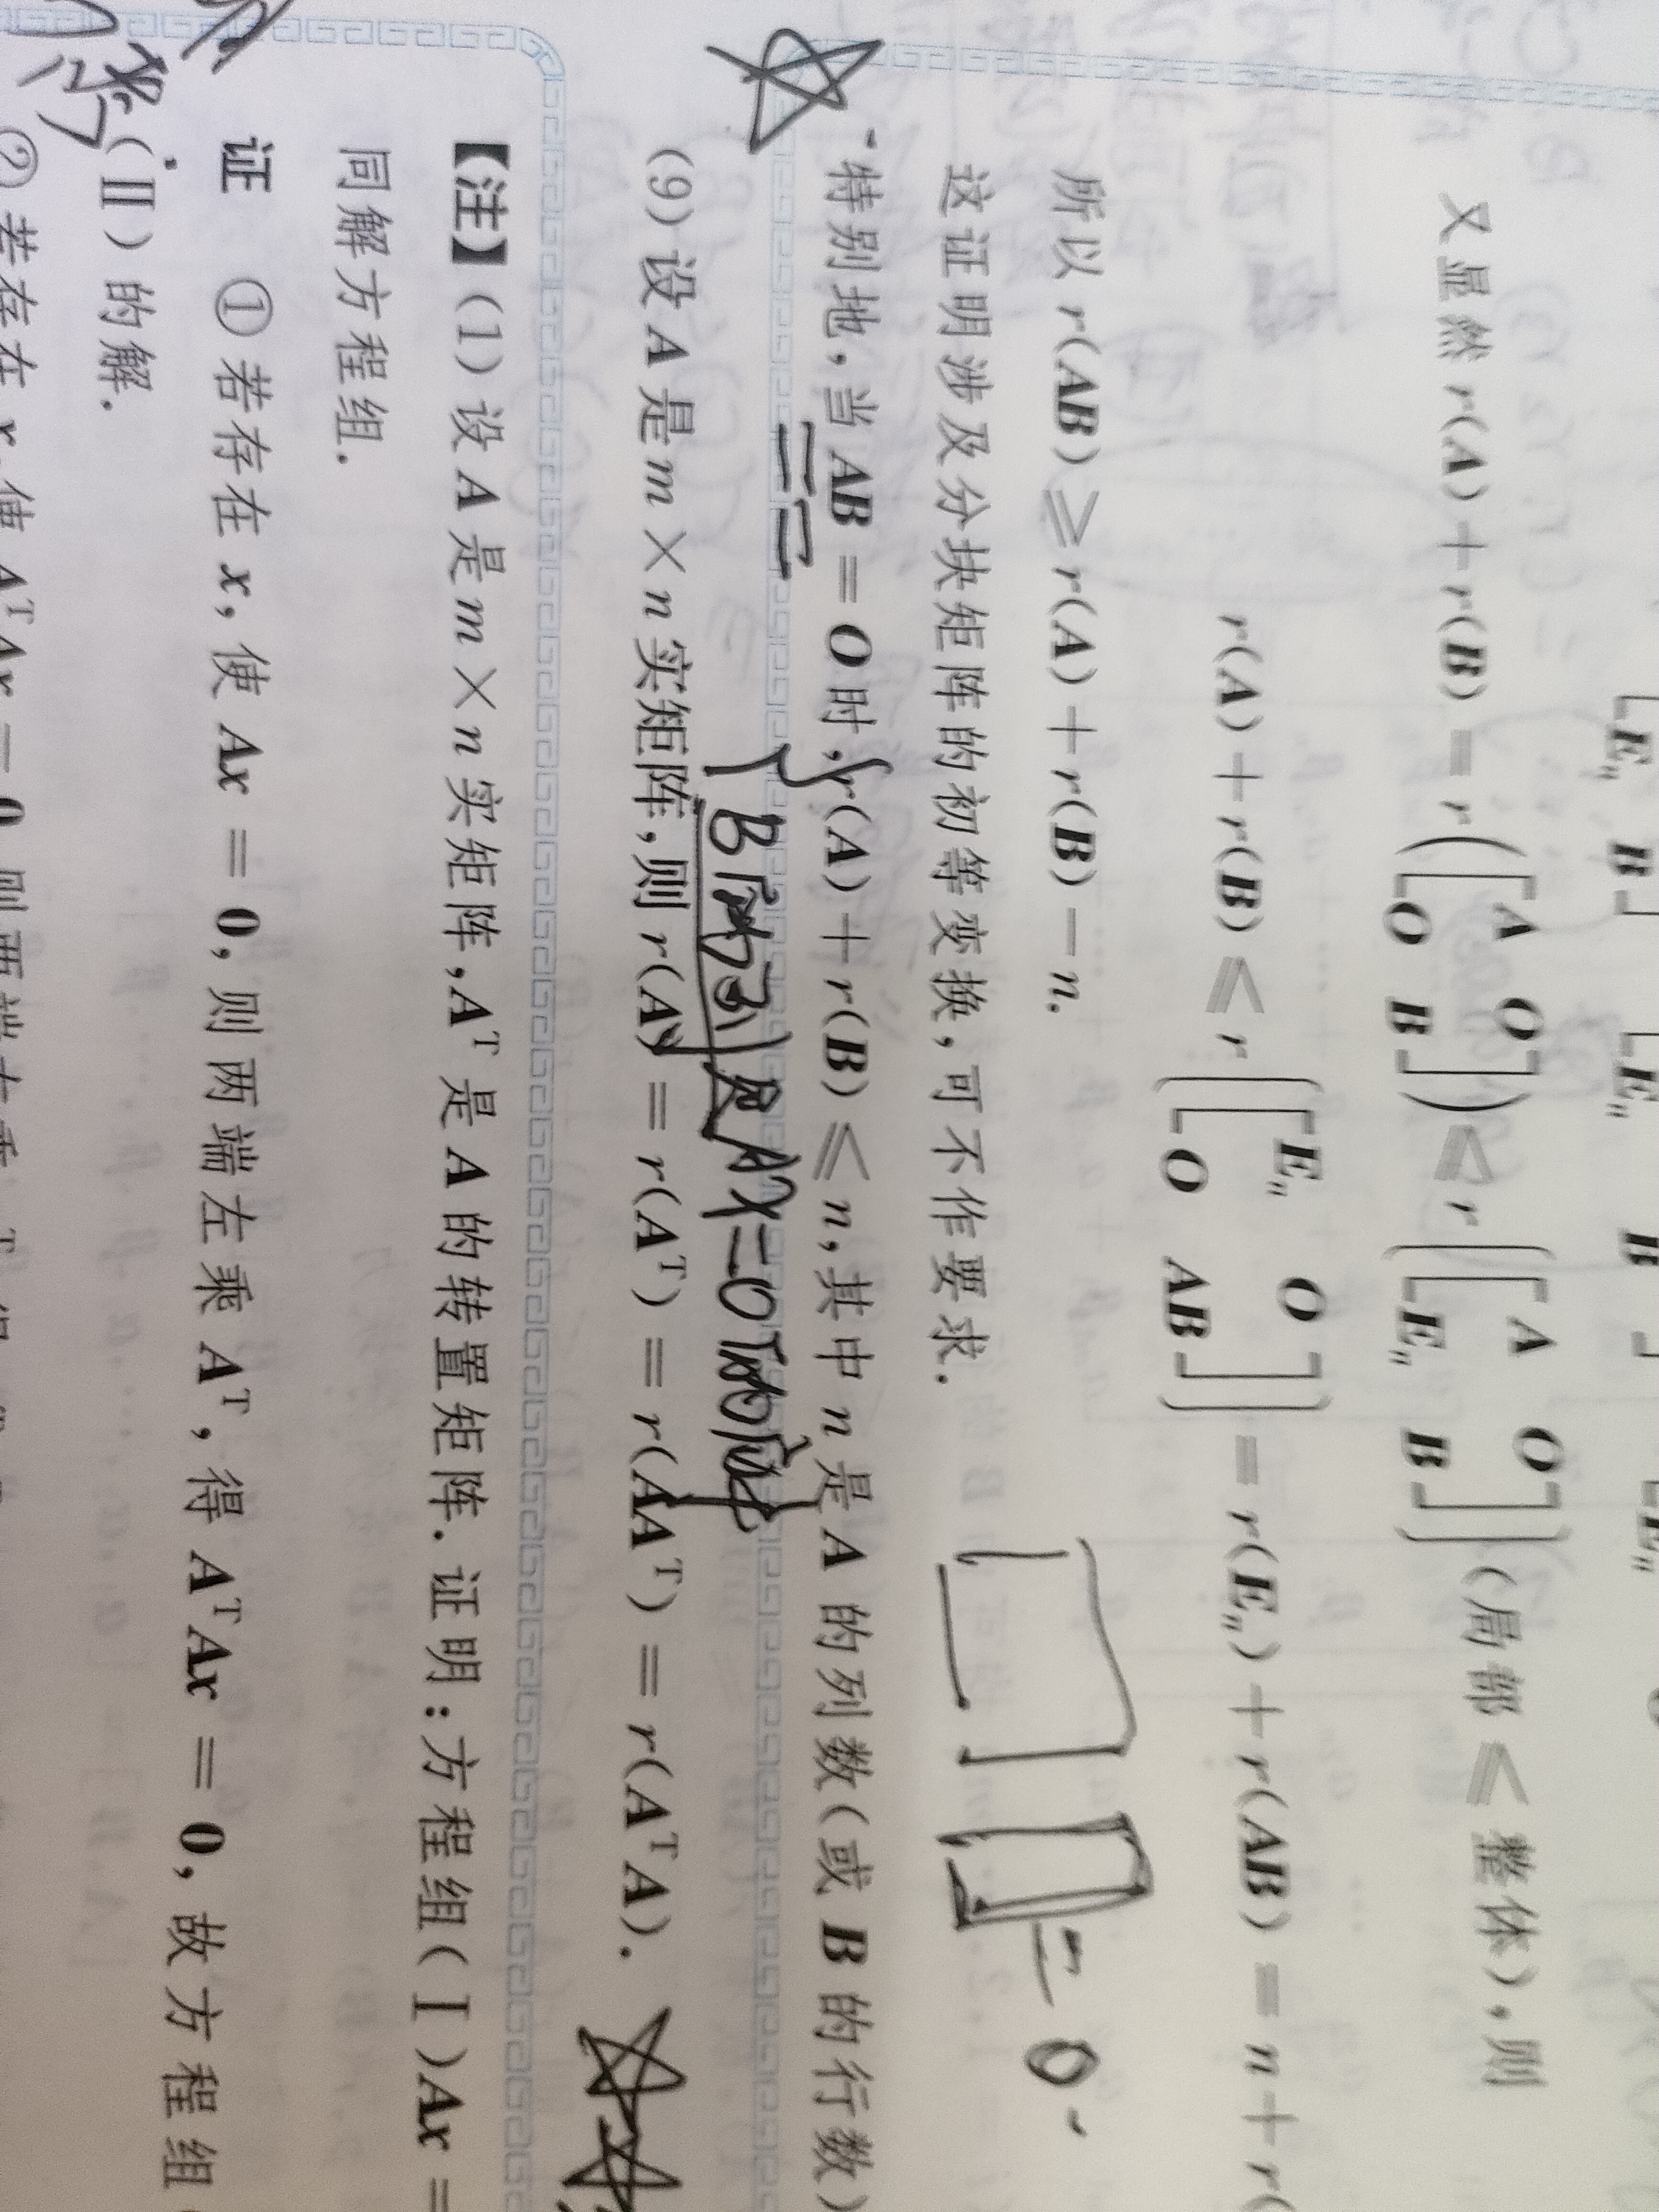 [E_n B] [E_n B] [E_n
又显然 r(A)+r(B)=r([A O; O B])≤r([A O; E_n B])(局部≤整体),则
r(A)+r(B)≤r([E_n O; O AB])=r(E_n)+r(AB)=n+r(
所以 r(AB)≥r(A)+r(B)-n.
这证明涉及分块矩阵的初等变换,可不作要求.
=0.
特别地,当 AB=O 时,r(A)+r(B)≤n,其中 n 是 A 的列数(或 B 的行数)
B的列 是 AX=0的解
(9)设 A 是 m×n 实矩阵,则 r(A)=r(Aᵀ)=r(AAᵀ)=r(AᵀA).
【注】(1)设 A 是 m×n 实矩阵,Aᵀ 是 A 的转置矩阵.证明:方程组(Ⅰ)Ax=
同解方程组.
证 ①若存在 x,使 Ax=0,则两端左乘 Aᵀ,得 AᵀAx=0,故方程组
(Ⅱ)的解.
②若存在 x,使 AᵀAx=0,则两端左乘